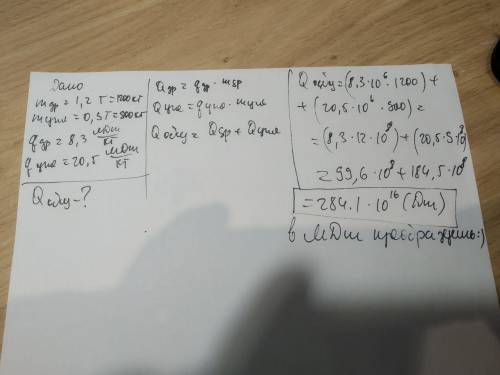 Дано
m др = 1,2 т = 1200 кг
m угля = 0,9 т = 900 кг
q др = 8,3 МДж/кг
q угля = 20,5 МДж/кг
Q общ - ?
Qдр = qдр · mдр
Qугля = qугля · mугля
Qобщ = Qдр + Qугля
Q общ = (8,3·10⁶·1200) +
+ (20,5·10⁶·900) =
= (8,3·12·10⁸) + (20,5·9·10⁸)
= 99,6·10⁸ + 184,5·10⁸
= 284.1·10¹⁶ (Дж)
в МДж преобразуешь:)